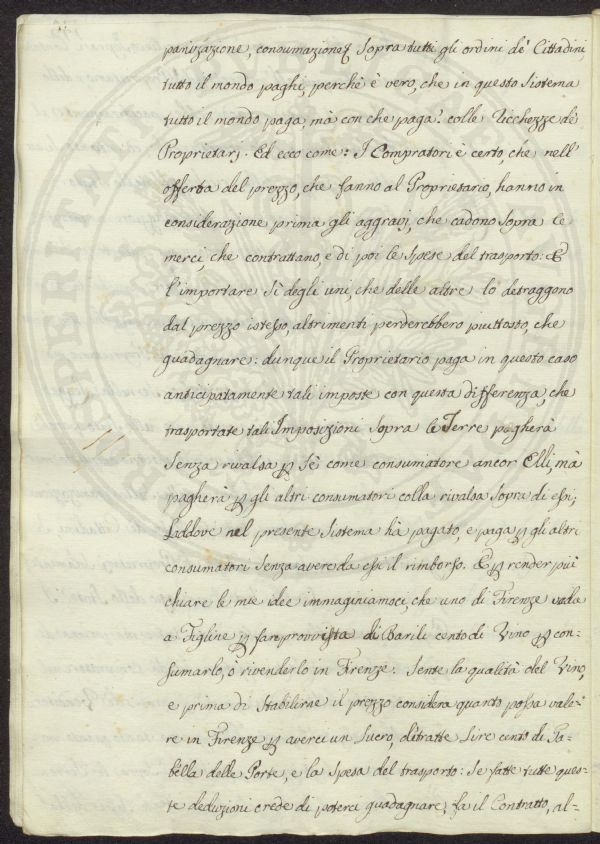 panizazione, consumazione &c. Sopra tutti gli ordini de' Cittadini,
tutto il mondo paghi, perchè è vero, che in questo Sistema
tutto il mondo paga, mà con che paga? colle Ricchezze de'
Proprietarj. Ed ecco come: I Compratori è certo, che nell'
offerta del prezzo, che fanno al Proprietario, hanno in
considerazione prima gli aggravj, che cadono Sopra le
merci, che contrattano, e di poi le Spese del trasporto: E
l'importare Sì degli uni, che delle altre lo detraggono
dal prezzo istesso, altrimenti perderebbero piuttosto, che
guadagnare: dunque il Proprietario paga in questo caso
anticipatamente tali imposte con questa differenza, che
trasportate tali Imposizioni Sopra le Terre pagherà
Senza rivalsa p Sè come consumatore ancor Elli, mà
pagherà p gli altri consumatori colla rivalsa Sopra di essi;
Laddove nel presente Sistema hà pagato, e paga p gli altri
consumatori Senza averne da essi il rimborso. E p render più
chiare le mie idee immaginiamoci, che uno di Firenze vada
a Figline p fare provvista di Barili cento di Vino p con-
sumarlo, ò rivenderlo in Firenze. Sente la qualità del Vino,
e prima di Stabilirne il prezzo considera quanto possa vale-
re in Firenze p averci un lucro, detratte Lire cento di Ga-
bella delle Porte, e la Spesa del trasporto: Se fatte tutte ques-
te deduzioni crede di poterci guadagnare, fa il Contratto, al-